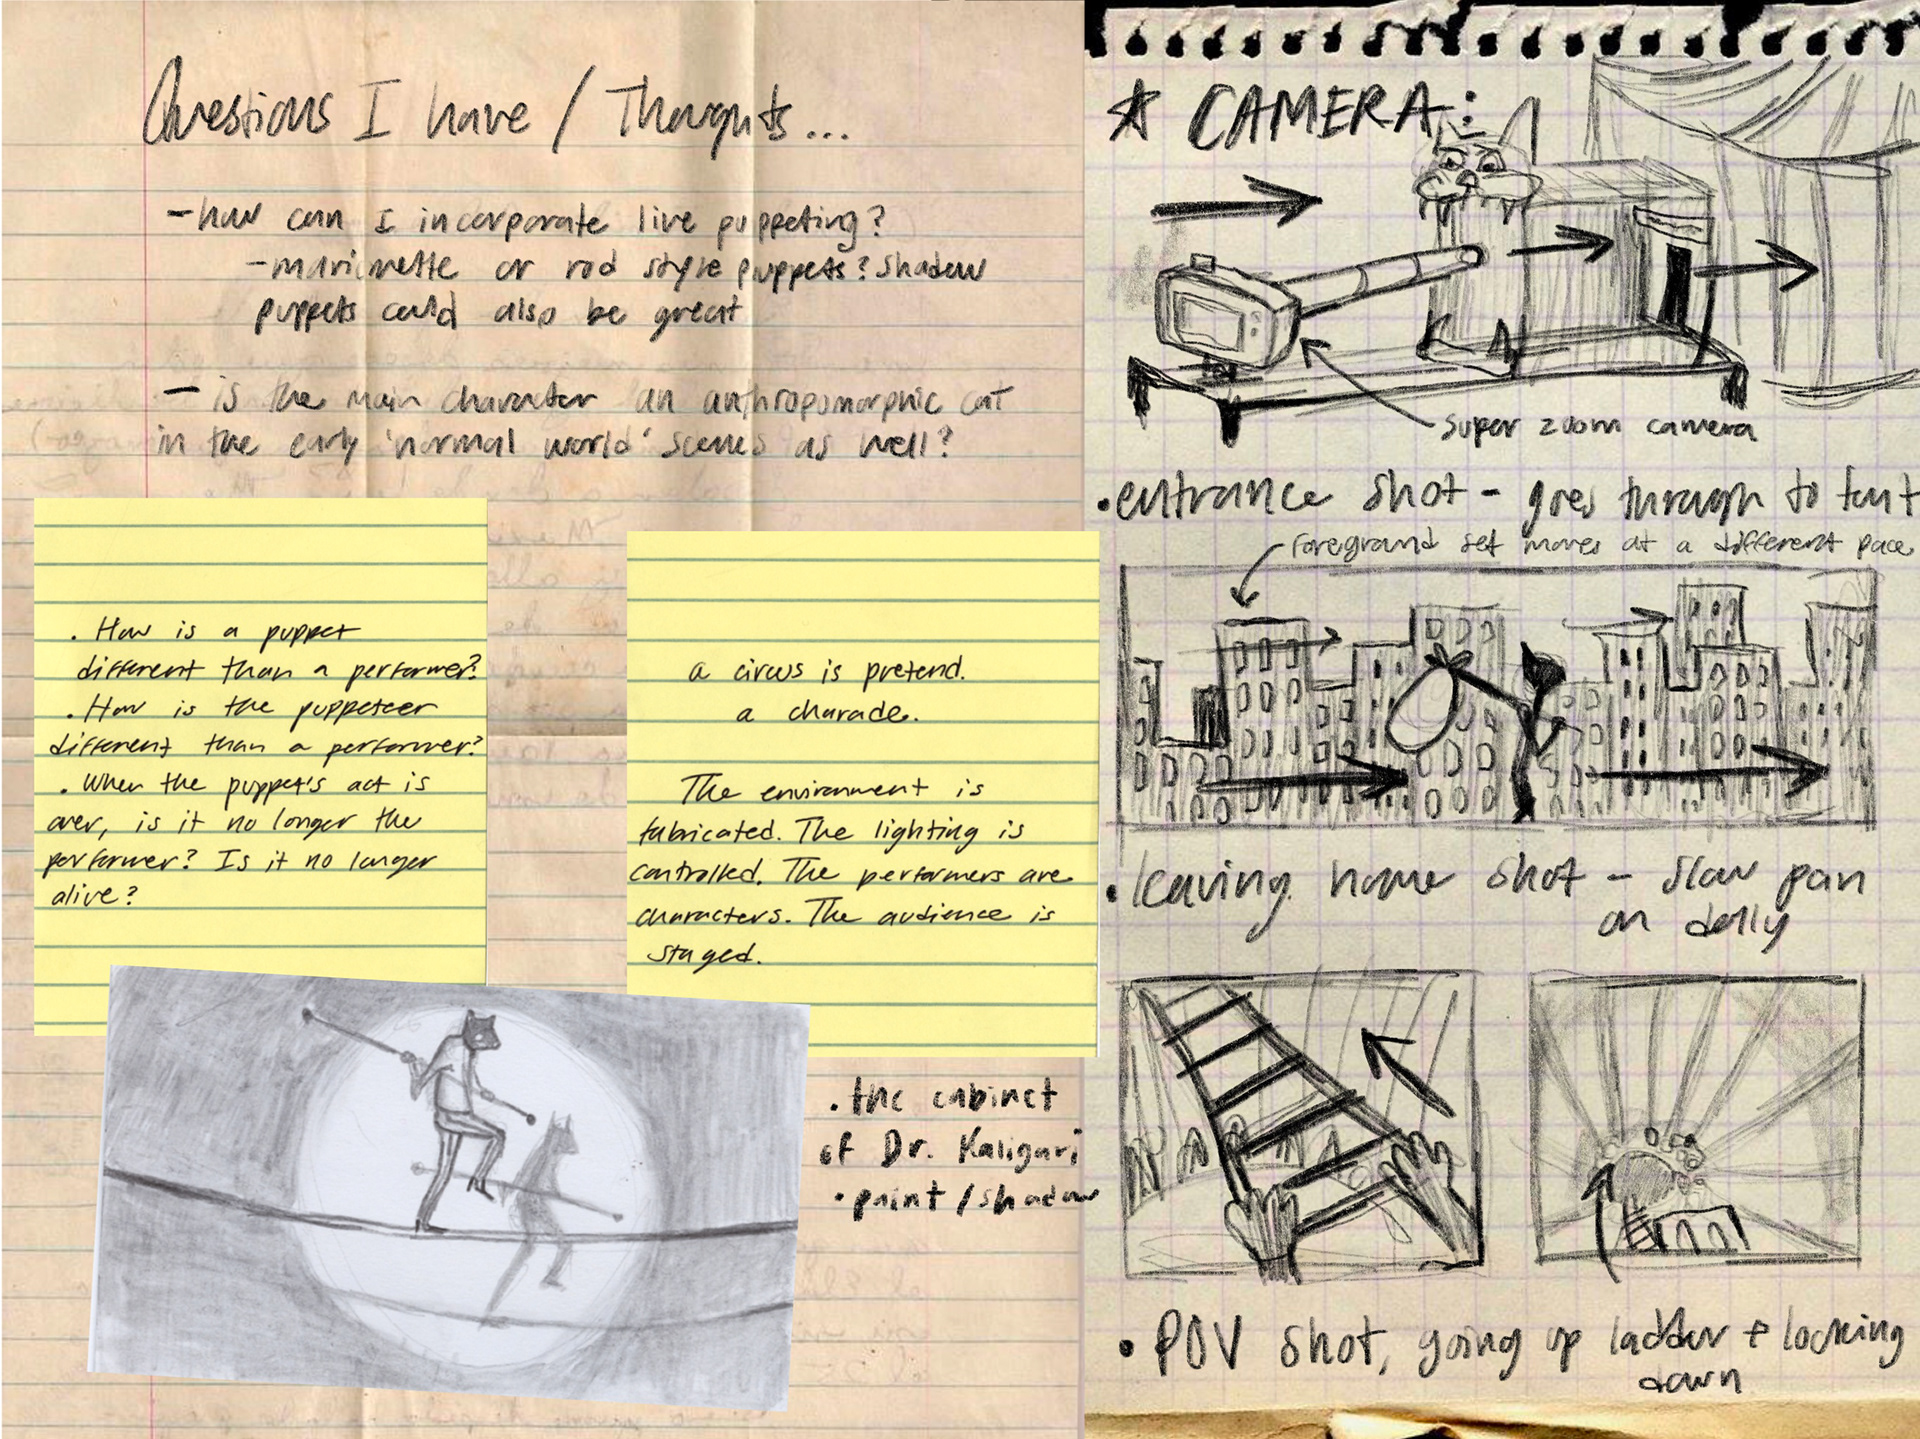 Questions I have / Thoughts...
- how can I incorporate live puppeting?
- marionette or rod style puppets? Shadow
puppets could also be great
- is the main character an anthropomorphic cat
in the early 'normal world' scenes as well?
. How is a puppet
different than a performer?
. How is the puppeteer
different than a performer?
. When the puppet's act is
over, is it no longer the
performer? Is it no longer
alive?
a circus is pretend.
a charade.
The environment is
fabricated. The lighting is
controlled. The performers are
characters. The audience is
staged.
. the cabinet
of Dr. Kaligari
• paint / shadow
★ CAMERA:
super zoom camera
• entrance shot - goes through to tent
foreground set moves at a different pace
• leaving home shot - slow pan
on dolly
• POV shot, going up ladder + looking
down